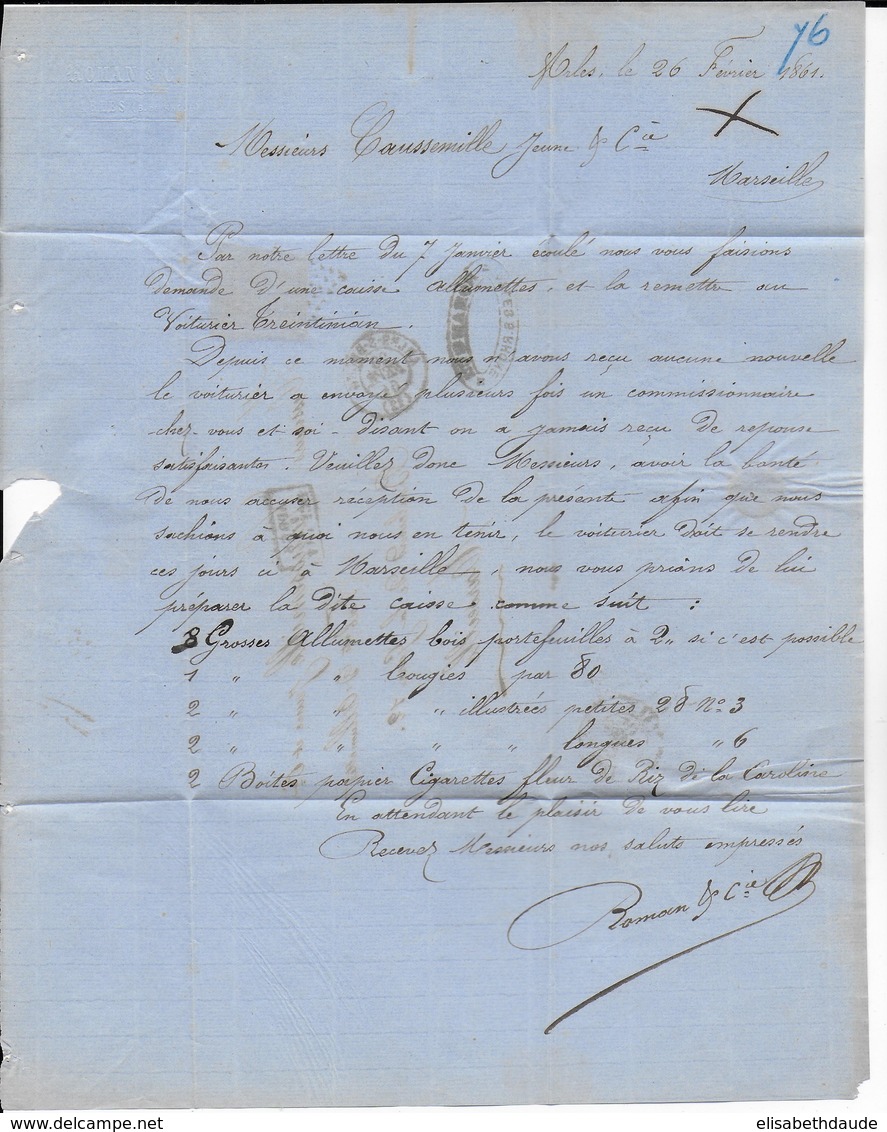 76
Arles, le 26 Février 1861.
Messieurs Caussemille Jeune & Cie
Marseille
Par notre lettre du 7 Janvier écoulé nous vous faisions
demande d'une caisse allumettes, et la remettre au
Voiturier Treintinian.
Depuis ce moment nous n'avons reçu aucune nouvelle
le voiturier a envoyé plusieurs fois un commissionnaire
chez vous et soi-disant on a jamais reçu de reponse
satisfaisante. Veuillez donc Messieurs, avoir la bonté
de nous accuser reception de la présente afin que nous
sachions à quoi nous en tenir, le voiturier doit se rendre
ces jours ci à Marseille, nous vous prions de lui
préparer la dite caisse comme suit :
8 Grosses Allumettes bois portefeuilles à 2" si c'est possible
1 " " bougies par 80
2 " " " illustrées petites 28 No 3
2 " " " " longues " 6
2 Boites papier Cigarettes fleur de Riz de la Caroline
En attendant le plaisir de vous lire
Recevez Messieurs nos saluts empressés
Roman & Cie
elisabethdaude